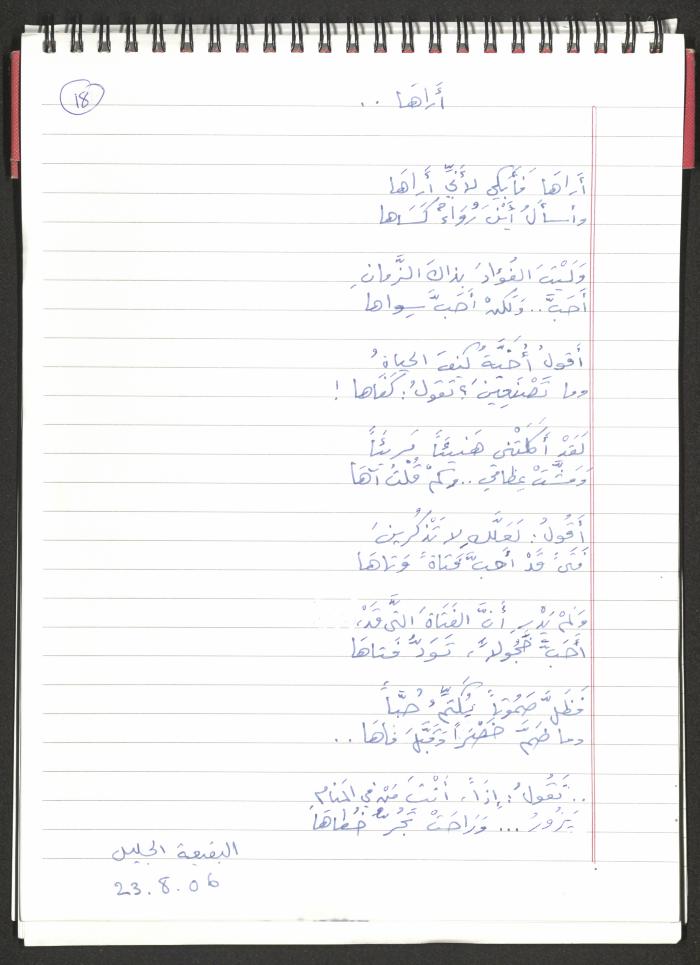 18
أَراهَا ..
أَراهَا فَأَبْكِي لأَنِّي أَرَاهَا
وأسأَلُ أَيْنَ رُوَاءٌ كَسَاها
وَلَيْتَ الفُؤادَ بِذاكَ الزَّمانِ
أَحَبَّ.. وَلَكِنْ أَحَبَّ سِواها
أَقولُ أُخَيَّةُ كَيْفَ الحياةُ
وما تَصْنَعِينَ؟ تَقولُ: كَفَاها !
لَقَدْ أَكَلَتْني هَنِيئَاً مَرِيئَاً
وَمَشَّتْ عِظامي.. وكَمْ قُلْتُ آهَا
أَقُولُ: لَعَلَّكِ لا تَذْكُرينَ
فَتَىً قَدْ أَحبَّ فَتاةً وَتاهَا
وَلَمْ يَدْرِ أَنَّ الفَتَاةَ التَّي قَدْ
أَحَبَّ خَجُولاً، تَوَدُّ فَتاهَا
فَظَلَّ صَمُوتَاً يُكَتِّمُ حُبَّاً
وما ضَمَّ خَصْرَاً وَقَبَّلَ فَاهَا ..
.. تَقُولُ: إِذَاً، أَنْتَ مَنْ في المَنامِ
يَزُورُ ... وَرَاحَتْ تَجُرُّ خُطاهَا
البقيعة الجليل
23.8.06